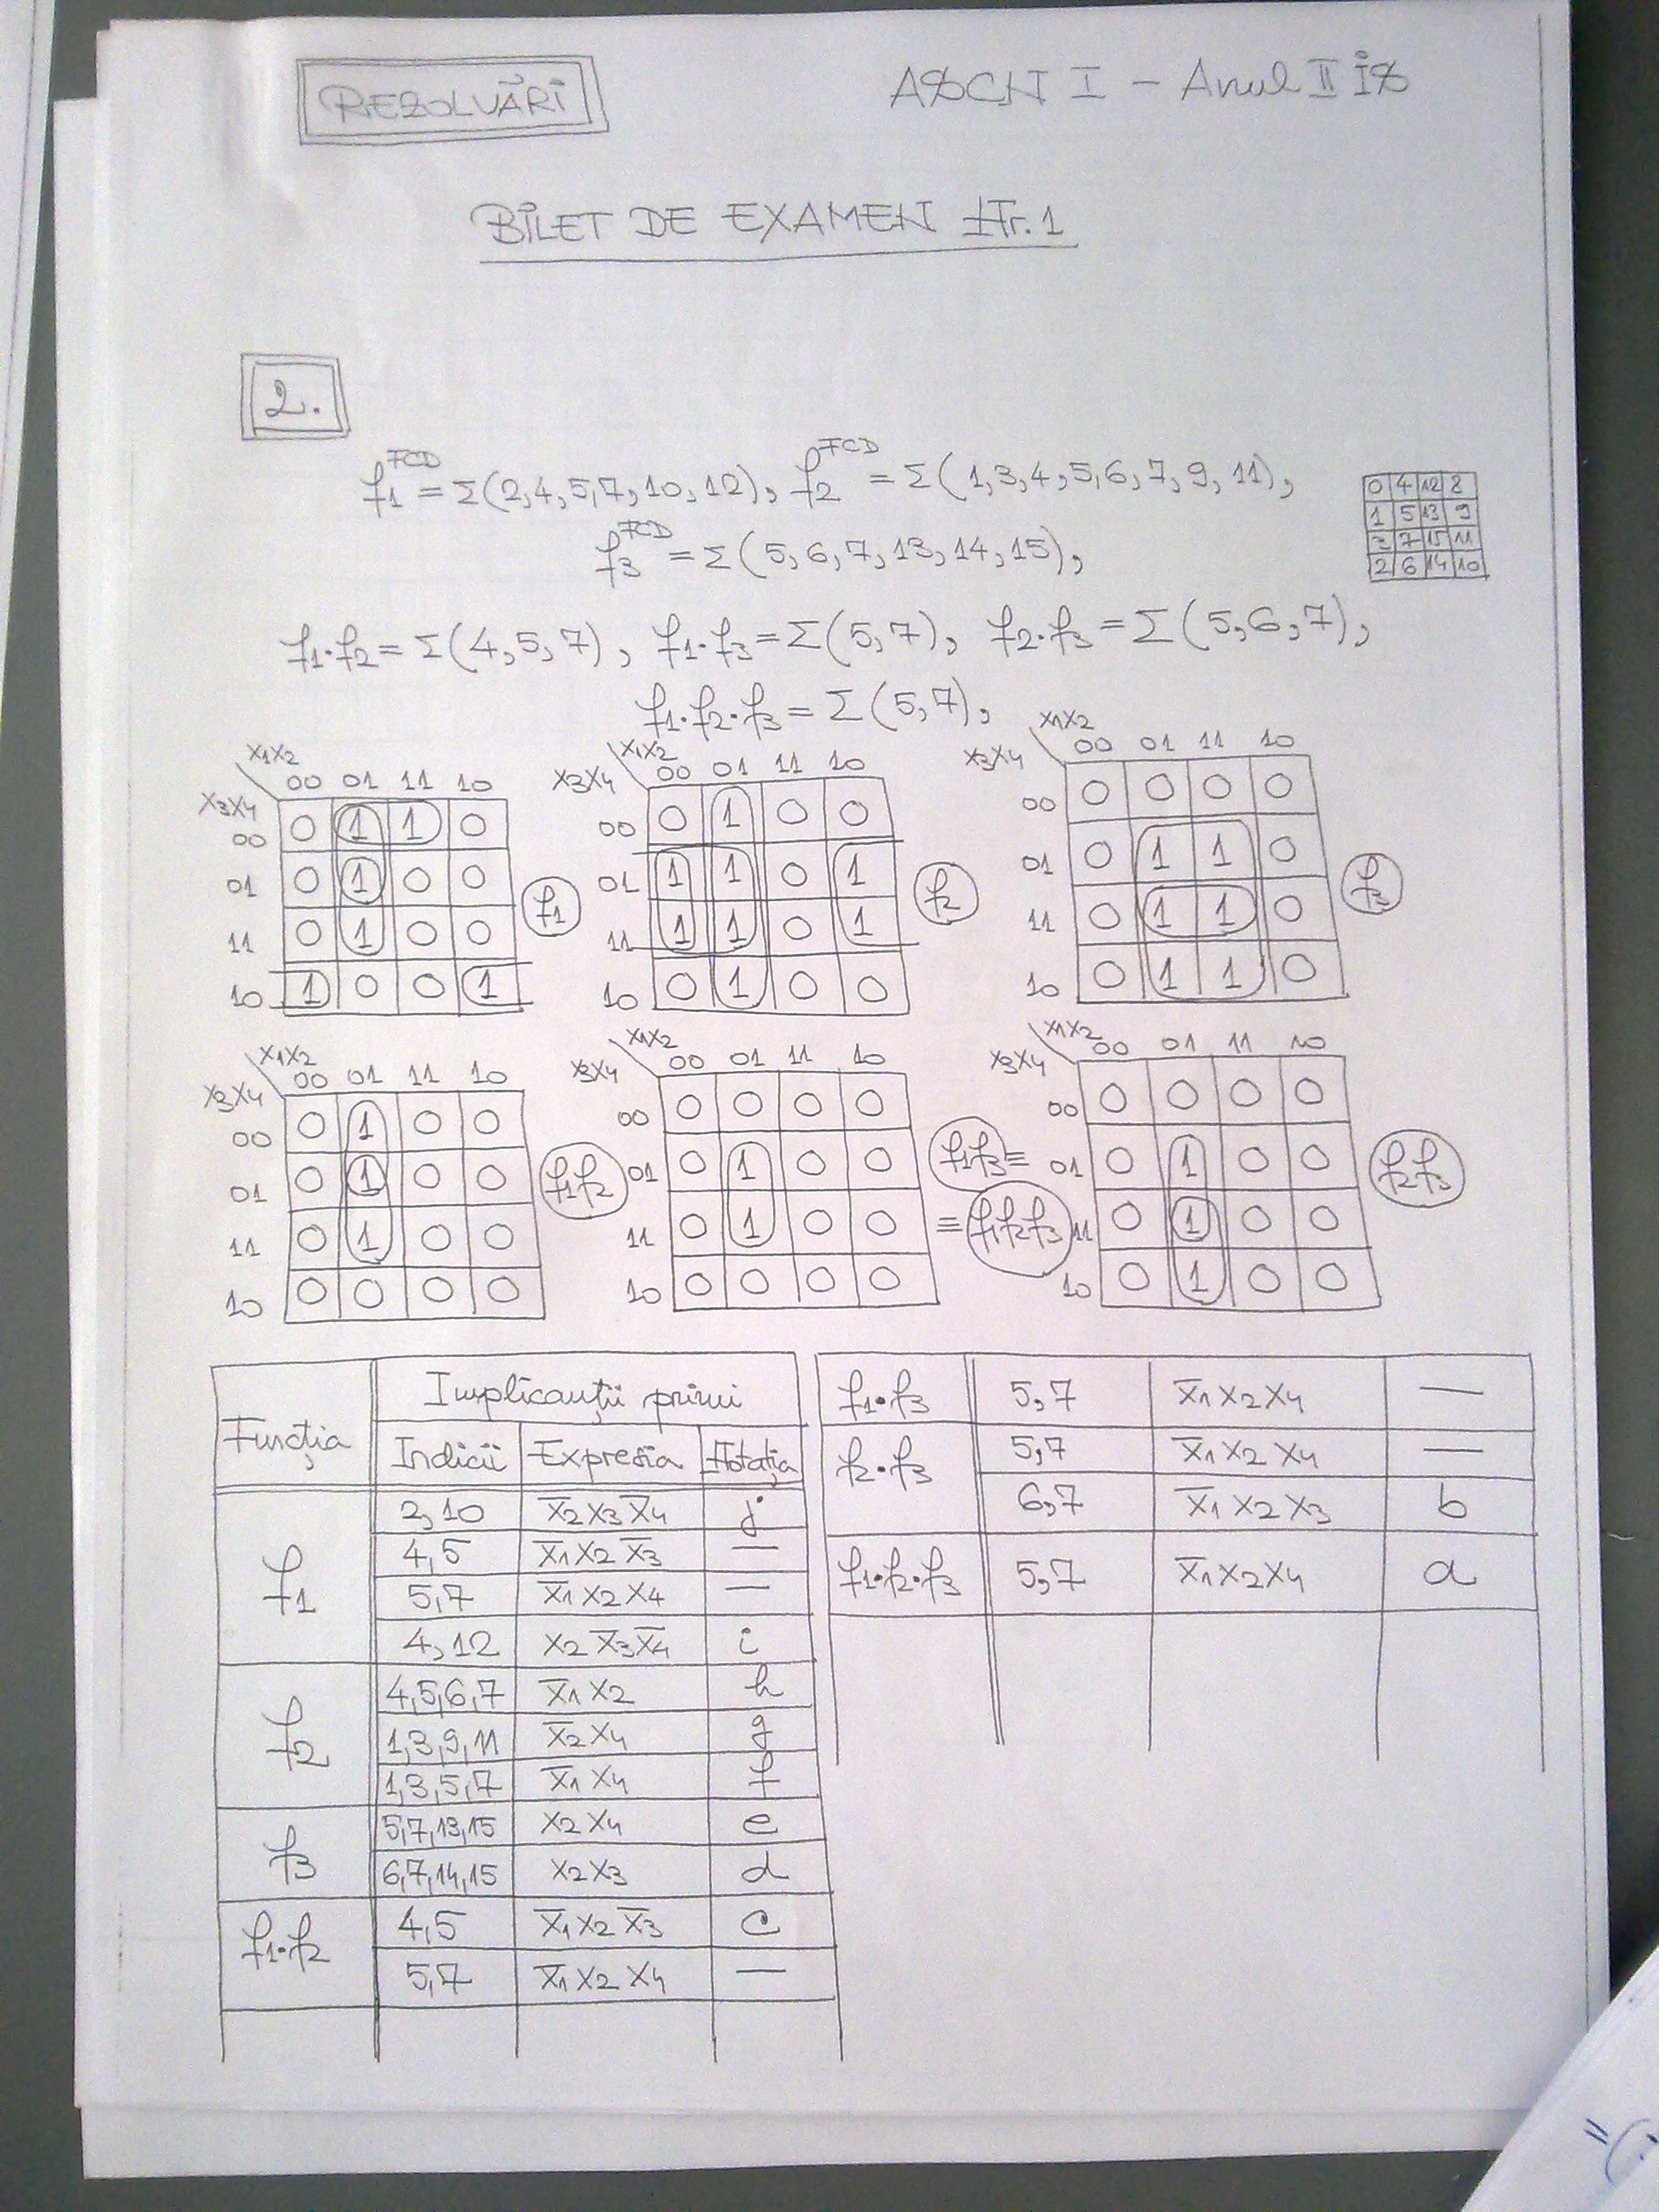 REZOLVĂRI
ASCN I – Anul II IS
BILET DE EXAMEN Nr. 1
2.
f1^FCD = Σ(2,4,5,7,10,12), f2^FCD = Σ(1,3,4,5,6,7,9,11),
f3^FCD = Σ(5,6,7,13,14,15),
0 4 12 8
1 5 13 9
3 7 15 11
2 6 14 10
f1·f2 = Σ(4,5,7), f1·f3 = Σ(5,7), f2·f3 = Σ(5,6,7),
f1·f2·f3 = Σ(5,7),
x1x2
x3x4 00 01 11 10
00 0 1 1 0
01 0 1 0 0
11 0 1 0 0
10 1 0 0 1
f1
x1x2
x3x4 00 01 11 10
00 0 1 0 0
01 1 1 0 1
11 1 1 0 1
10 0 1 0 0
f2
x1x2
x3x4 00 01 11 10
00 0 0 0 0
01 0 1 1 0
11 0 1 1 0
10 0 1 1 0
f3
x1x2
x3x4 00 01 11 10
00 0 1 0 0
01 0 1 0 0
11 0 1 0 0
10 0 0 0 0
f1f2
x1x2
x3x4 00 01 11 10
00 0 0 0 0
01 0 1 0 0
11 0 1 0 0
10 0 0 0 0
f1f3 ≡
≡ f1f2f3
x1x2
x3x4 00 01 11 10
00 0 0 0 0
01 0 1 0 0
11 0 1 0 0
10 0 1 0 0
f2f3
Funcția Implicanții primi
Indicii Expresia Notația
f1
2,10 x̄2x3x̄4 j
4,5 x̄1x2x̄3 —
5,7 x̄1x2x4 —
4,12 x2x̄3x̄4 i
f2
4,5,6,7 x̄1x2 h
1,3,9,11 x̄2x4 g
1,3,5,7 x̄1x4 f
f3
5,7,13,15 x2x4 e
6,7,14,15 x2x3 d
f1·f2
4,5 x̄1x2x̄3 c
5,7 x̄1x2x4 —
f1·f3 5,7 x̄1x2x4 —
f2·f3
5,7 x̄1x2x4 —
6,7 x̄1x2x3 b
f1·f2·f3 5,7 x̄1x2x4 a